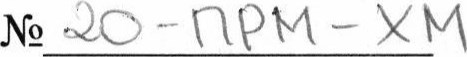 № 20-ПРМ-ХМ